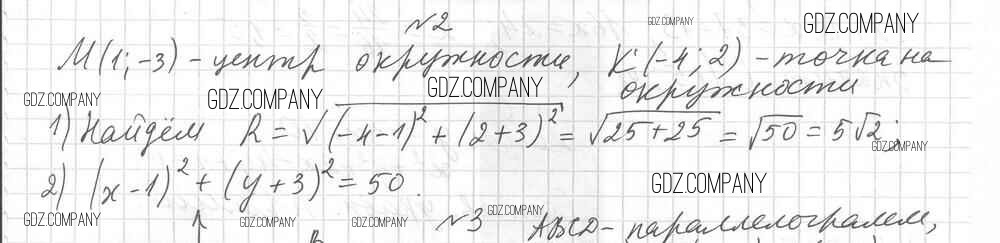 №2
GDZ.COMPANY
GDZ.COMPANY
М(1;-3) - центр окружности, К(-4; 2) - точка на
окружности
GDZ.COMPANY
GDZ.COMPANY
GDZ.COMPANY
1) Найдём R = √((-4-1)² + (2+3)²) = √25+25 = √50 = 5√2;
GDZ.COMPANY
2) (x-1)² + (y+3)² = 50.
GDZ.COMPANY
GDZ.COMPANY
GDZ.COMPANY
GDZ.COMPANY
GDZ.COMPANY
№3 ABCD - параллелограмм,